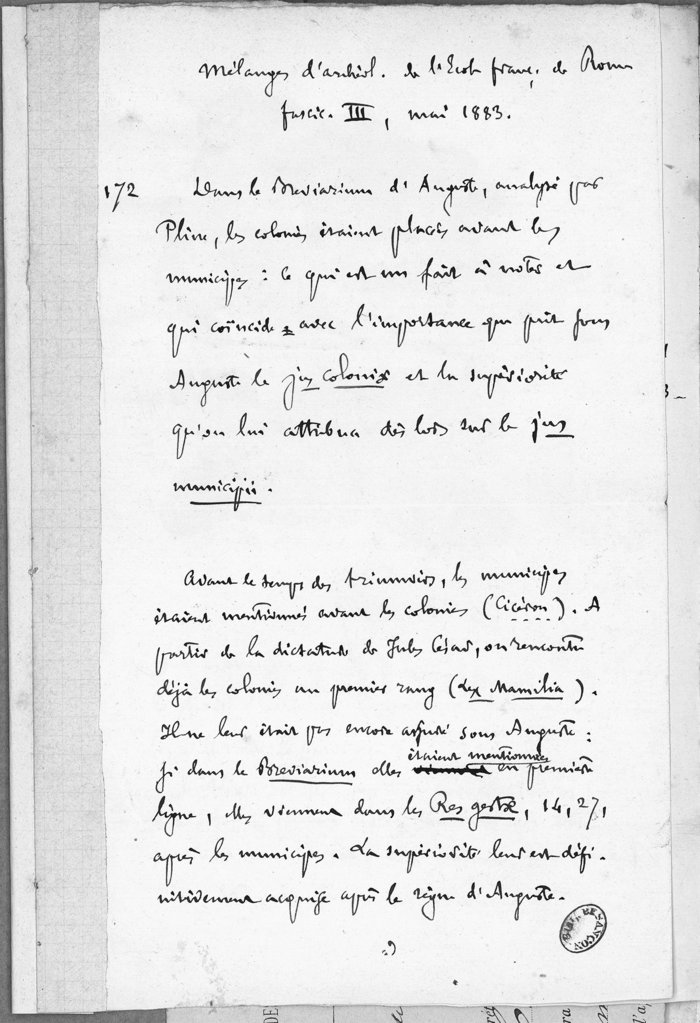 Mélanges d'archéol. de l'Ecole franç. de Rome
fascic. III, mai 1883.
172 Dans le Breviarium d'Auguste, analysé par
Pline, les colonies étaient placées avant les
municipes : ce qui est un fait à noter et
qui coïncide avec l'importance que prit sous
Auguste le jus coloniæ et la supériorité
qu'on lui attribua dès lors sur le jus
municipii.
Avant le temps des triumvirs, les municipes
étaient mentionnés avant les colonies (Cicéron). A
partir de la dictature de Jules César, on rencontre
déjà les colonies au premier rang (Lex Mamilia).
Il ne leur était pas encore assuré sous Auguste :
si dans le Breviarium elles étaient mentionnées en première
ligne, elles viennent dans les Res gestæ, 14, 27,
après les municipes. La supériorité leur est défi-
nitivement acquise après le règne d'Auguste.
BIBL. BESANÇON
DE